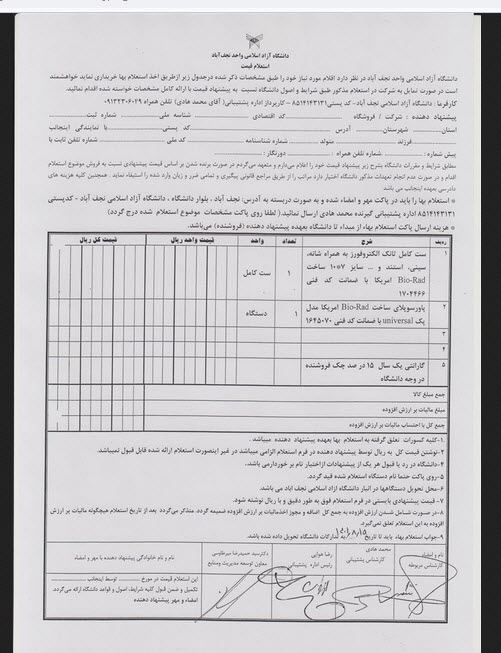 دانشگاه آزاد اسلامی واحد نجف آباد
استعلام قیمت
دانشگاه آزاد اسلامی واحد نجف آباد در نظر دارد اقلام مورد نیاز خود را طبق مشخصات ذکر شده درجدول زیر ازطریق اخذ استعلام بها خریداری نماید خواهشمند
است در صورت تمایل به شرکت در استعلام مذکور طبق شرایط و اصول دانشگاه نسبت به پیشنهاد قیمت با ارائه کامل مشخصات خواسته شده اقدام نمائید.
کارفرما : دانشگاه آزاد اسلامی نجف آباد - کد پستی ۸۵۱۴۱۴۳۱۳۱ – کارپرداز اداره پشتیبانی ( آقای محمد هادی) تلفن همراه ۰۹۱۳۳۳۰۶۰۳۹
پیشنهاد دهنده : شرکت / فروشگاه کد اقتصادی شناسه ملی شماره ثبت
استان شهرستان آدرس کد پستی با نمایندگی اینجانب
فرزند متولد شماره شناسنامه کد ملی شماره تلفن ثابت با
پیش شماره : شماره تلفن همراه : دورنگار :
مطابق شرایط و مقررات دانشگاه بشرح زیر پیشنهاد قیمت خود را اعلام می‌دارم و متعهد می‌گردم در صورت برنده شدن بر اساس قیمت پیشنهادی نسبت به فروش موضوع استعلام
اقدام و در صورت عدم انجام تعهدات مذکور دانشگاه اختیار دارد مراتب را از طریق مراجع قانونی پیگیری و تمامی ضرر و زیان وارد شده را استیفاء نماید . همچنین کلیه هزینه های
دادرسی بعهده اینجانب می باشد
* استعلام بها را باید در پاکت مهر و امضاء شده و به صورت دربسته به آدرس: نجف آباد ، بلوار دانشگاه ، دانشگاه آزاد اسلامی نجف آباد - کدپستی
۸۵۱۴۱۴۳۱۳۱ اداره پشتیبانی گیرنده محمد هادی ارسال نمائید.( لطفا روی پاکت مشخصات موضوع استعلام شده درج گردد)
* هزینه ارسال پاکت استعلام بهاء از مبداء تا دانشگاه بعهده پیشنهاد دهنده (فروشنده) می‌باشد.
ردیف شرح تعداد واحد قیمت واحد ریال قیمت کل ریال
۱ ست کامل تانک الکتروفورز به همراه شانه، ۱ ست کامل
سینی، استند و ... سایز ۷*۱۰ ساخت
Bio-Rad امریکا با ضمانت کد فنی
۱۷۰۴۴۶۶
۲ پاورسوپلای ساخت Bio-Rad امریکا مدل ۱ دستگاه
پک universal با ضمانت کد فنی ۱۶۴۵۰۷۰
۳
۴
۵ گارانتی یک سال ۱۵ در صد چک فروشنده
در وجه دانشگاه
جمع مبلغ کالا
مبلغ مالیات بر ارزش افزوده
جمع کل با احتساب مالیات بر ارزش افزوده
۱-کلیه کسورات تعلق گرفته به استعلام بها بعهده پیشنهاد دهنده میباشد .
۲-نوشتن قیمت کل به ریال توسط پیشنهاد دهنده در فرم استعلام الزامی میباشد در غیر اینصورت استعلام ارائه شده قابل قبول نمیباشد.
۴-دانشگاه در رد یا قبول هر یک از پیشنهادات ازاختیار تام بر خوردارمی باشد.
۵-روی پاکت حتما نام دستگاه استعلام شده قید گردد.
۶-محل تحویل دستگاهها در انبار دانشگاه آزاد اسلامی نجف آباد می باشد.
۷- قیمت پیشنهادی بایستی در فرم استعلام فوق به طور دقیق و با ریال نوشته شود.
۸-در صورت شامل شدن ارزش افزوده به جمع کل اضافه و مجوز اخذمالیات بر ارزش افزوده ضمیمه گردد، متذکر می‌گردد بعد از تاریخ استعلام هیچگونه مالیات بر ارزش
افزوده به این استعلام تعلق نمی‌گیرد.
۹-جواب استعلام بهاء باید تا تاریخ به تدارکات دانشگاه تحویل داده شده باشد.
نام و امضاء محمد هادی رضا هوایی دکترسید حمیدرضا میرطاوسی نام و نام خانوادگی پیشنهاد دهنده با مهر و امضاء
کارشناس مربوطه کارشناس پشتیبانی رئیس اداره پشتیبانی معاون توسعه مدیریت ومنابع
این استعلام قیمت در مورخ توسط اینجانب
تکمیل و ضمن قبول کلیه شرایط، اصول و قواعد دانشگاه ارائه می‌گردد.
امضاء و مهر پیشنهاد دهنده